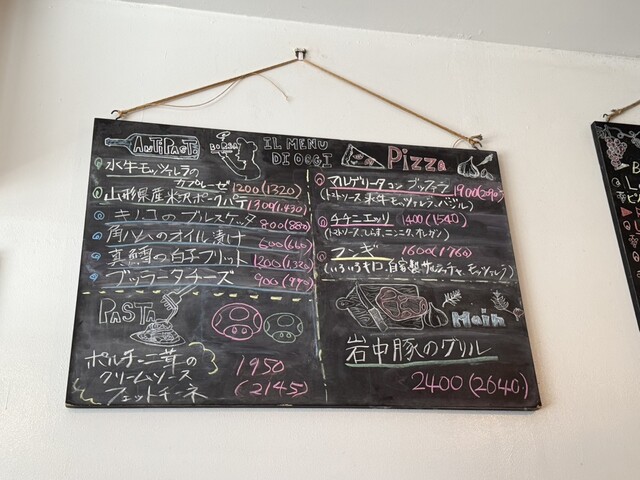 ANTIPASTO
BORSA
IL MENU
DI OGGI
水牛モッツァレラの
カプレーゼ 1200(1320)
山形県産米沢ポークパテ 1300(1430)
キノコのブルスケッタ 800(880)
角ハムのオイル漬け 600(660)
真鱈の白子フリット 1200(1320)
ブッラータチーズ 900(990)
PASTA
ポルチーニ茸の
クリームソース
フェットチーネ
1950
(2145)
Pizza
マルゲリータコンブッファラ 1900(2090)
(トマトソース、水牛モッツァレラ、バジル)
チチニエッリ 1400(1540)
(トマトソース、しらす、ニンニク、オレガノ)
フンギ 1600(1760)
(いろいろキノコ、自家製サルシッチャ、モッツァレラ)
Main
岩中豚のグリル
2400(2640)